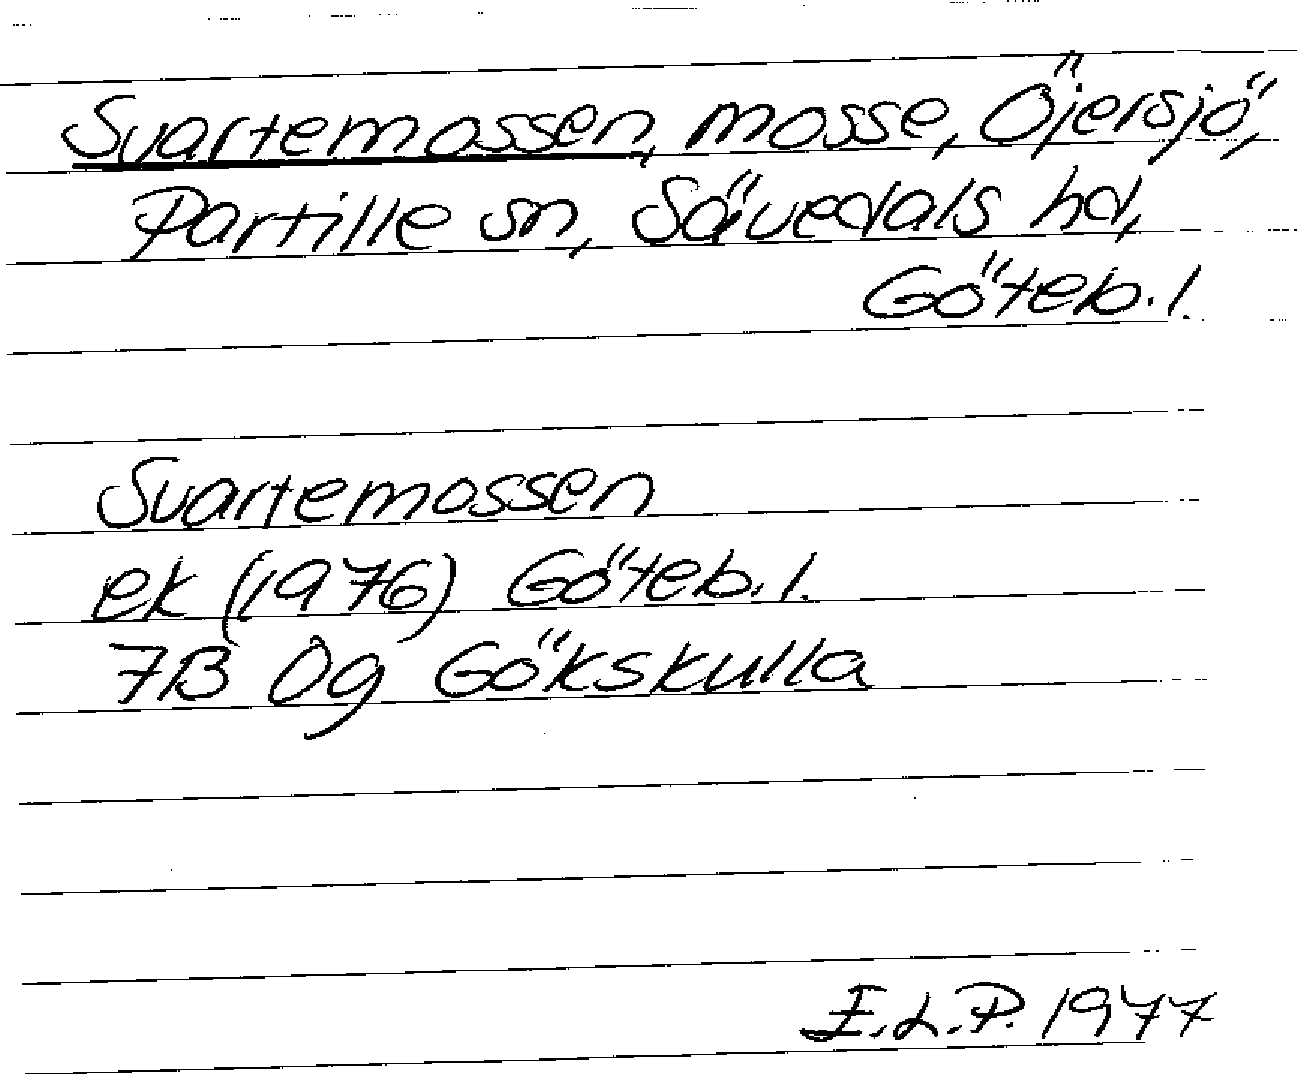 Svartemossen, mosse, Öjersjö,
Partille sn, Sävedals hd,
Göteb. l.
Svartemossen
ek (1976) Göteb. l.
7B 0g Gökskulla
E.L.P. 1977